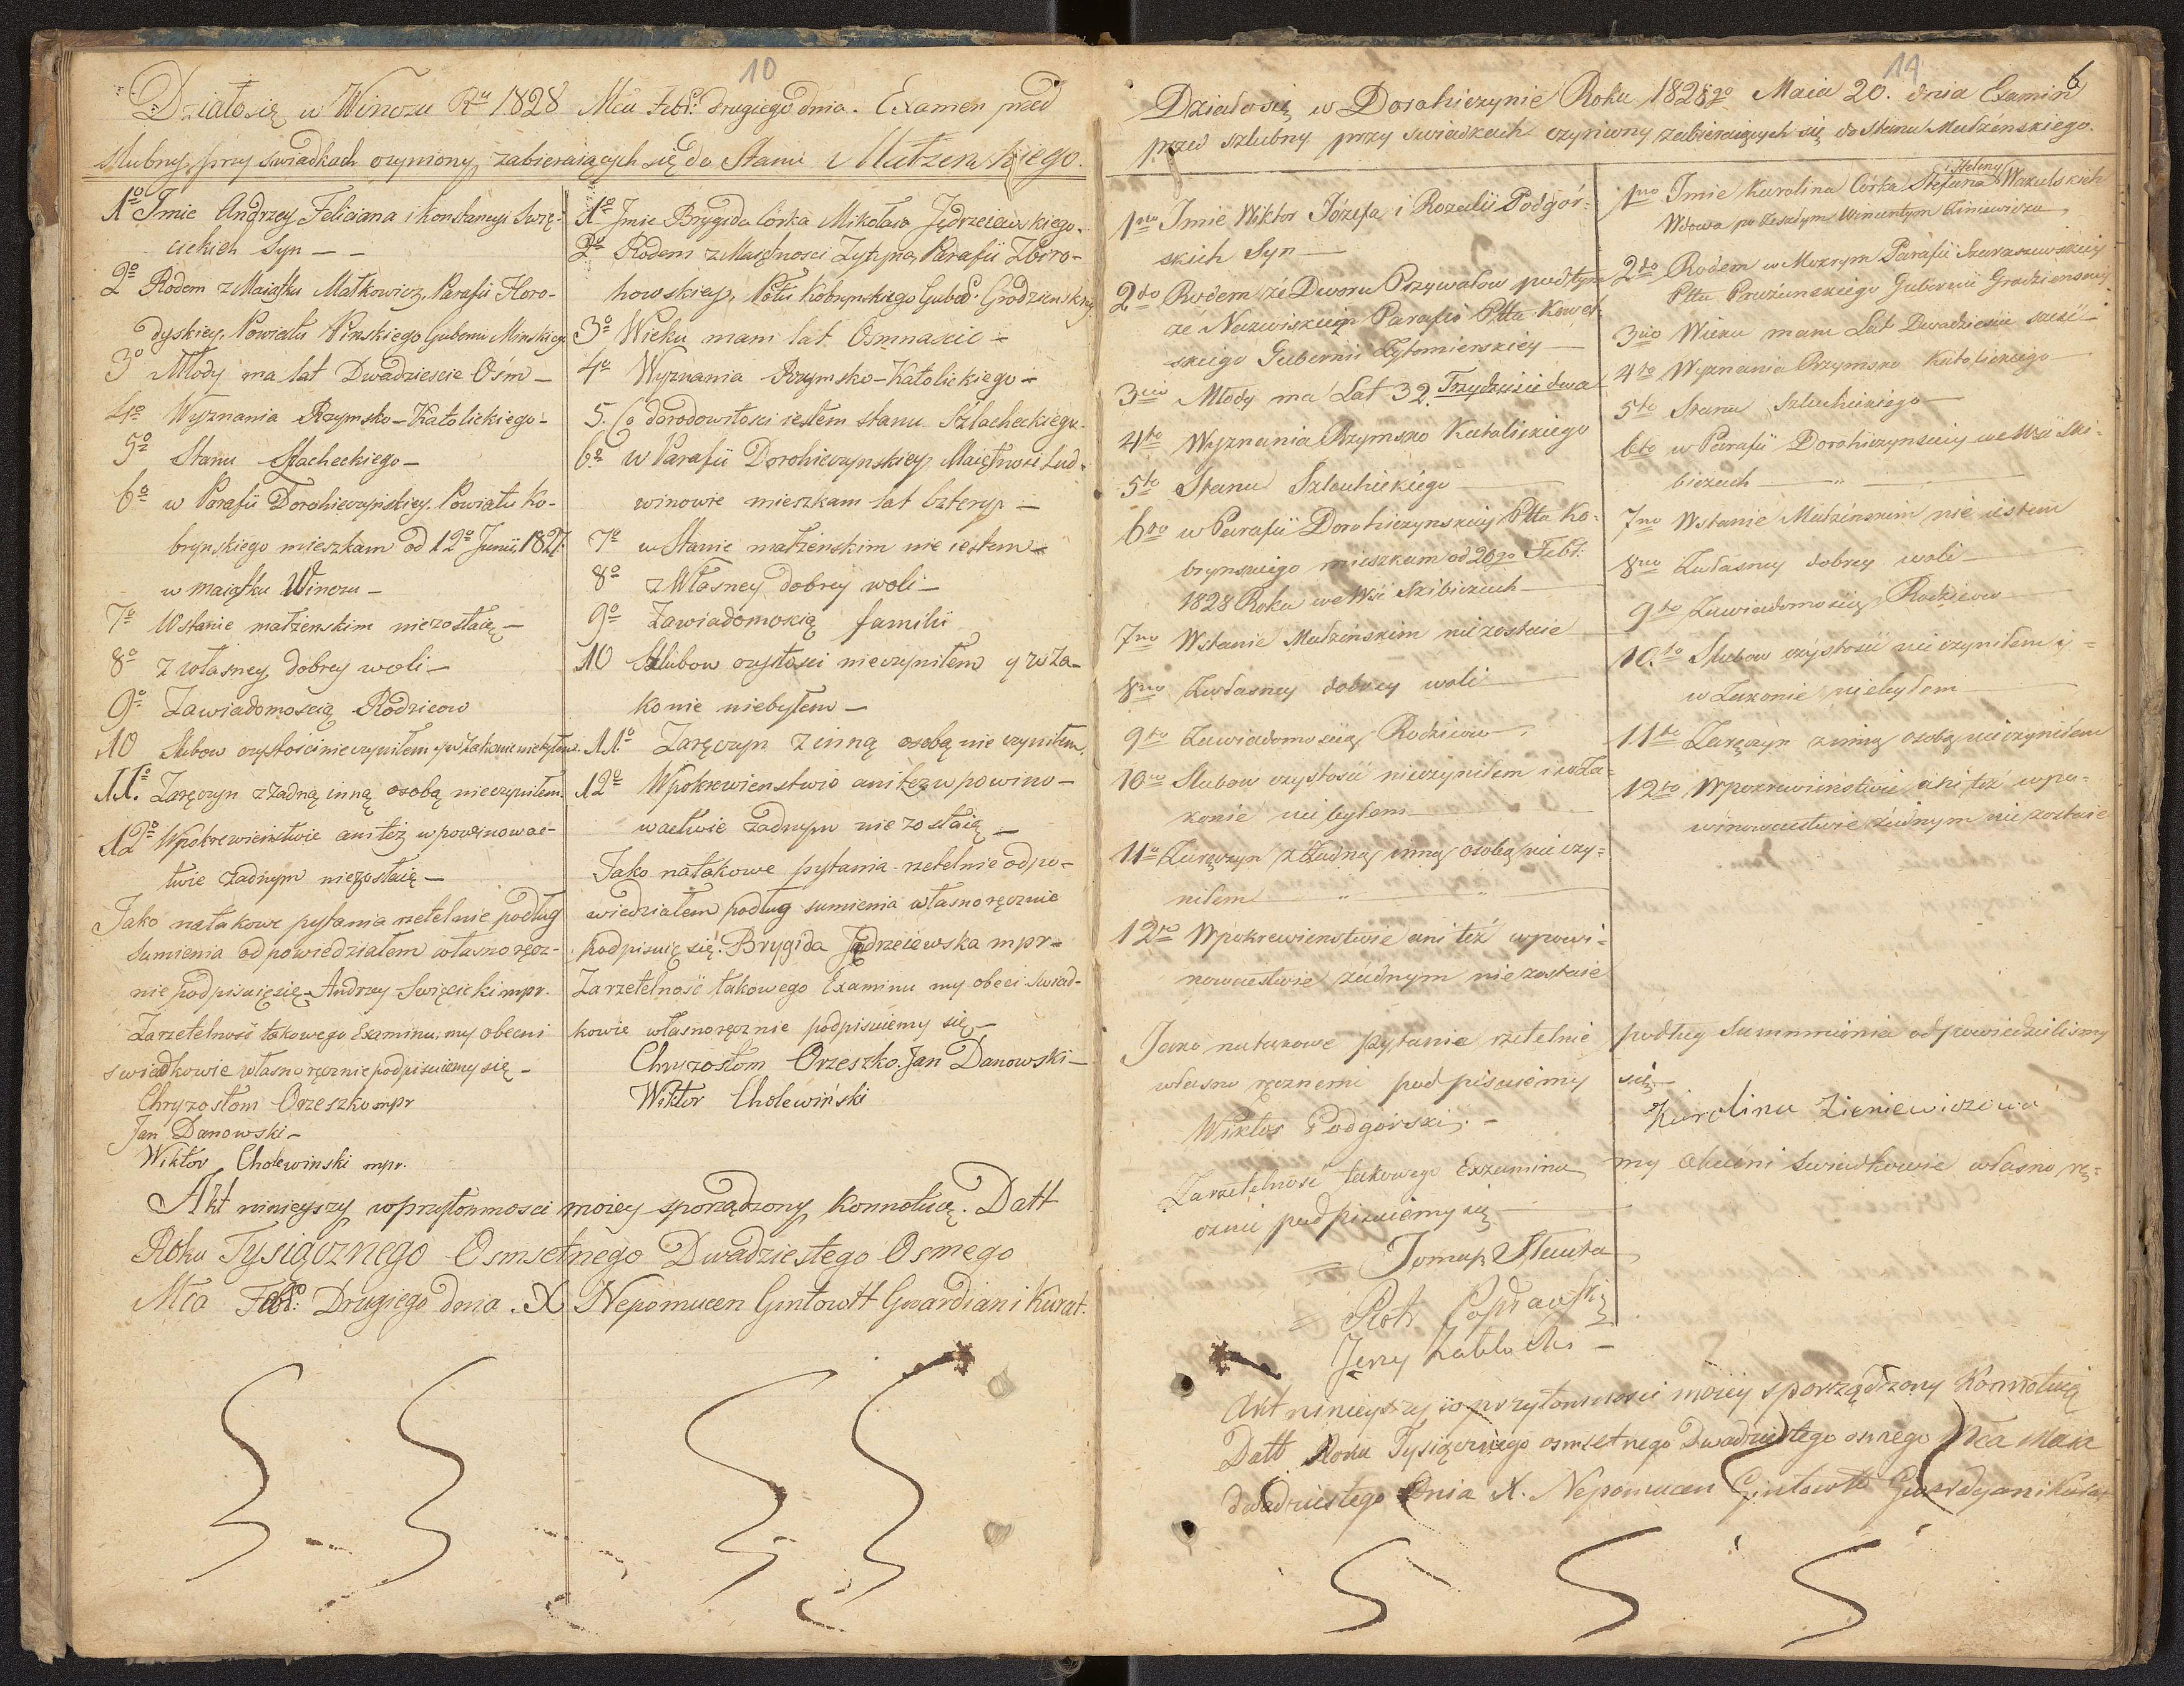 10
Działo się w Winozu Rku 1828 Mca Febr: drugiego dnia. Examen przed
slubny, przy swiadkach czyniony, zabieraiących się do Stanu Małżenskiego.
1º Imie Andrzey Feliciana i Konstancyi Swię-
cickich Syn - -
2º Rodem z Maiątku Małkowicz, Parafii Horo-
dyskiey, Powiatu Pinskiego Gubernii Minskiey
3º Młody ma lat Dwadziescie Ośm -
4º Wyznania Rzymsko-Katolickiego -
5º Stanu Szlacheckiego -
6º w Parafii Dorohiczynskiey, Powiatu Ko-
brynskiego mieszkam od 12º Junii, 1827.
w maiątku Winozu -
7º W stanie małżenskim niezostaię -
8º z własney, dobrey woli -
9º Zawiadomoscią Rodzicow
10 Slubow czystości nieczyniłem y w Zakonie niebyłem.
11º Zaręczyn z żadną inną osobą nieczyniłem.
12º W pokrewienstwie ani też w powinowac-
twie żadnym niezostaię -
Jako na takowe pytania rzetelnie podług
sumienia odpowiedziałem własnoręcz-
nie podpisuię się Andrzey Swięcicki mpr.
Za rzetelność takowego Examinu, my obecni
swiadkowie własnoręcznie podpisuiemy się -
Chryzostom Orzeszko mpr
Jan Danowski -
Wiktor Cholewinski mpr.
1º Imie Brygida Córka Mikołaia Jędrzeiewskiego.
2º Rodem z Maiętnosci Żytyna, Parafii Zbiro-
howskiey, Pottu Kobrynskiego Guber: Grodzienskiey
3º Wieku mam lat Osmnascie -
4º Wyznania Rzymsko-Katolickiego -
5. Co do rodowitosci iestem stanu Szlacheckiego.
6º w Parafii Dorohiczynskiey, Maiętnosi Lud-
winowie mieszkam lat Cztery -
7º w Stanie małżenskim nie iestem -
8º z Własney dobrey woli -
9º Zawiadomoscią familii
10 Szlubow czystosci nieczyniłem y w Za-
konie niebyłem -
11º Zaręczyn z inną osobą nie czyniłem.
12º W pokrewienstwie ani też w powino-
wactwie żadnym nie zostaię -
Jako na takowe pytania rzetelnie odpo-
wiedziałem podług sumienia własnoręcznie
podpisuię się. Brygida Jędrzeiewska mpr -
Za rzetelność takowego Examinu my obeci swiad-
kowie własnoręcznie podpisuiemy się -
Chryzostom Orzeszko. Jan Danowski -
Wiktor Cholewiński
Akt ninieyszy w przytomnosci moiey sporządzony konnotuię. Datt
Roku Tysiącznego Osmsetnego Dwadziestego Osmego
Mca Febr: Drugiego dnia. X Nepomucen Gintowtt Gwardian i Kurat.
14
6
Działo się w Dorohiczynie Roku 1828go Maia 20. dnia Examin
przed szlubny przy swiadkach czyniony zabieraiących się do Stanu Małżenskiego.
1mo Imie Wiktor Józefa i Rozalii Podgór-
skich Syn -
2do Rodem ze Dworu Przywałow pod tym
że Nazwiskiem Parafii Pttu Kowel-
skiego Gubernii Żytomierskiey -
3cio Młody ma Lat 32. Trzydziście dwa
4to Wyznania Rzymsko Katolickiego
5to Stanu Szlacheckiego
6to w Parafii Dorohiczynskiey Pttu Ko-
brynskiego mieszkam od 20go Febr:
1828 Roku we Wsi Skibiczach
7mo W stanie Małżeńskim niezostaie
8vo Z własney dobrey woli
9no Zawiadomoscią Rodziców
10mo Slubow czystosci nieczyniłem i w Za-
konie nie byłem
11o Zaręczyn z żadną inną osobą nie czy-
niłem
12o W pokrewienstwie ani też w powi-
nowactwie żadnym nie zostaie
1mo Imie Karolina Córka Stefana i Heleny Wazulskich
Wdowa po Zeszłym Wincentym Ziniewiczu
2do Rodem w Mokrym Parafii Szeraszewskiey
Pttu Prużanskiego Gubernii Grodzienskiey
3cio Wieku mam Lat Dwadziescia sześć -
4to Wyznania Rzymsko Katolickiego
5to Stanu Szlacheckiego
6to w Parafii Dorohiczynskiey we Wsi Ski-
biczach
7mo W stanie Małżenskim nie iestem
8vo Z własney dobrey woli
9to Zawiadomoscią Rodzicow
10to Slubow czystosci nie czyniłem i -
w Zakonie niebyłem
11to Zaręczyn z inną osobą nieczyniłem
12to W pokrewienstwie ani też w po-
winowactwie żadnym nie zostaie
Jako na takowe pytania rzetelnie podług Summnienia odpowiedzielismy
własno ręcznemi podpisuiemy się -
Wiktor Podgórski. - Karolina Zieniewiczowa
Za rzetelność takowego Exzaminu my obecni swiadkowie własno rę-
cznie podpisuiemy się
Piotr
Jerzy Zabłocki -
Akt ninieyszy w przytomnosci moiey sporządzony Konnotuię
Datt Roku Tysiącznego osmsetnego Dwadziestego osmego Mca Maia
dwadziestego Dnia X. Nepomucen Gintowtt Gwardyan i Kurat